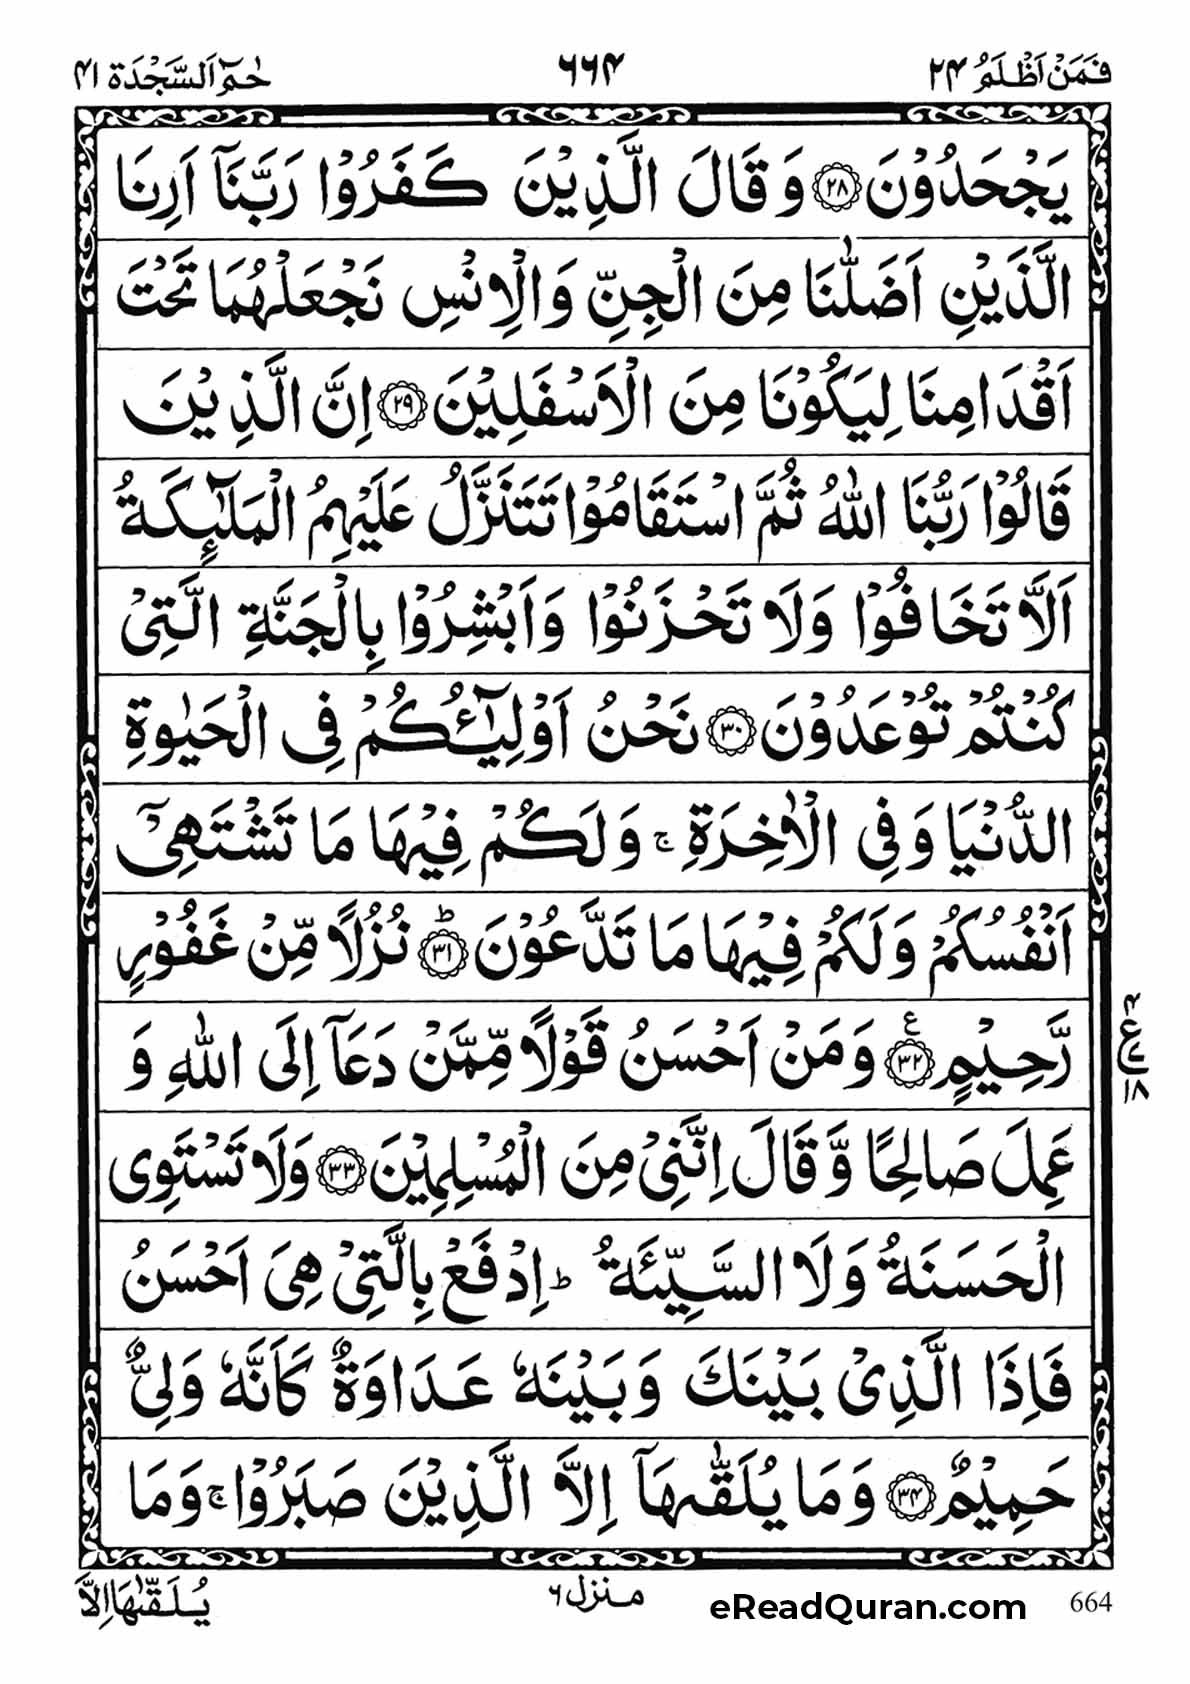 فَمَنْ اَظْلَمُ ۲۴ ۶۶۴ حٰمٓ اَلسَّجْدَة ۴۱
يَجْحَدُوْنَ ۲۸ وَ قَالَ الَّذِيْنَ كَفَرُوْا رَبَّنَآ اَرِنَا
الَّذَيْنِ اَضَلّٰنَا مِنَ الْجِنِّ وَالْاِنْسِ نَجْعَلْهُمَا تَحْتَ
اَقْدَامِنَا لِيَكُوْنَا مِنَ الْاَسْفَلِيْنَ ۲۹ اِنَّ الَّذِيْنَ
قَالُوْا رَبُّنَا اللّٰهُ ثُمَّ اسْتَقَامُوْا تَتَنَزَّلُ عَلَيْهِمُ الْمَلٰٓئِكَةُ
اَلَّا تَخَافُوْا وَلَا تَحْزَنُوْا وَاَبْشِرُوْا بِالْجَنَّةِ الَّتِيْ
كُنْتُمْ تُوْعَدُوْنَ ۳۰ نَحْنُ اَوْلِيٰٓـؤُكُمْ فِي الْحَيٰوةِ
الدُّنْيَا وَفِي الْاٰخِرَةِ ۚ وَلَكُمْ فِيْهَا مَا تَشْتَهِيْٓ
اَنْفُسُكُمْ وَلَكُمْ فِيْهَا مَا تَدَّعُوْنَ ۳۱ؕ نُزُلًا مِّنْ غَفُوْرٍ
رَّحِيْمٍ ۳۲ ع وَمَنْ اَحْسَنُ قَوْلًا مِّمَّنْ دَعَآ اِلَى اللّٰهِ وَ
عَمِلَ صَالِحًا وَّ قَالَ اِنَّنِيْ مِنَ الْمُسْلِمِيْنَ ۳۳ وَلَا تَسْتَوِي
الْحَسَنَةُ وَلَا السَّيِّئَةُ ؕ اِدْفَعْ بِالَّتِيْ هِيَ اَحْسَنُ
فَاِذَا الَّذِيْ بَيْنَكَ وَبَيْنَهٗ عَدَاوَةٌ كَاَنَّهٗ وَلِيٌّ
حَمِيْمٌ ۳۴ وَمَا يُلَقّٰىهَآ اِلَّا الَّذِيْنَ صَبَرُوْا ۚ وَمَا
يُلَقّٰىهَا اِلَّا منزل ۶ eReadQuran.com 664